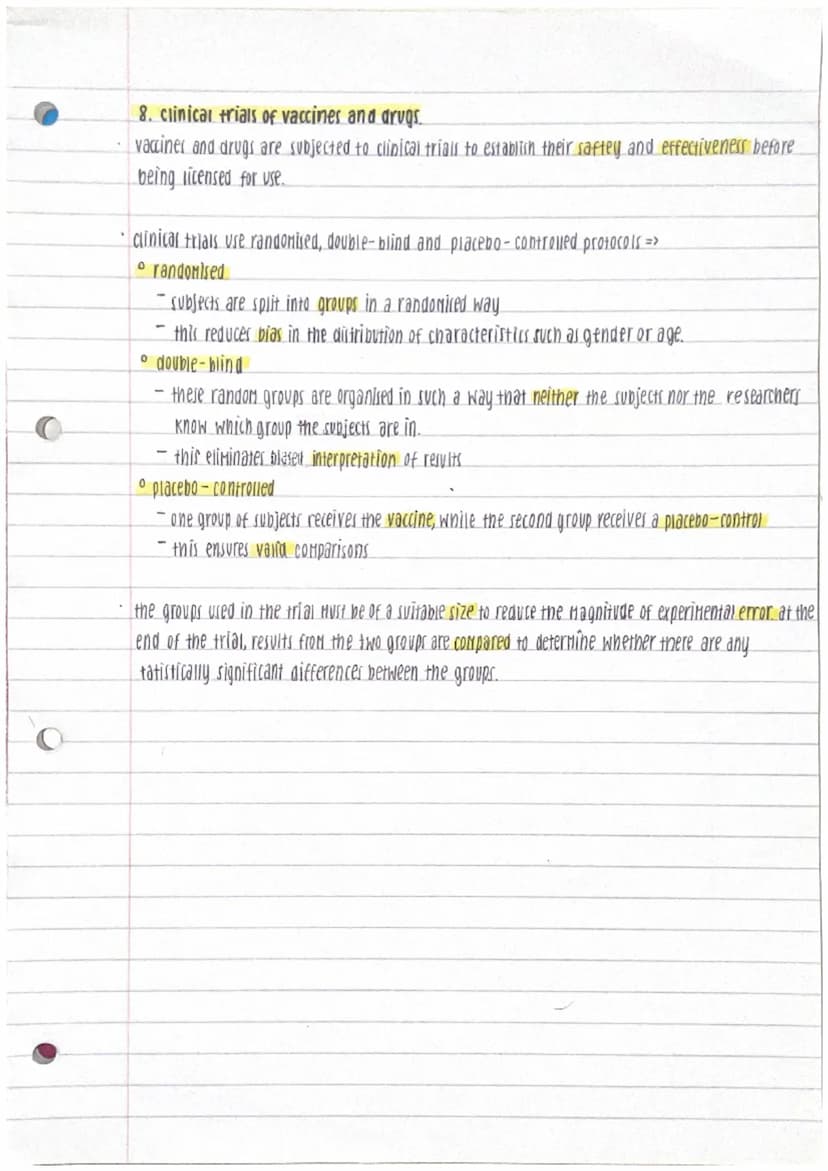 8. clinical trials of vaccines and drugs.
· vaccines and drugs are subjected to clinical trials to establish their saftey and effectiveness before
being licensed for use.
· clinical trials use randomised, double-blind and placebo-controlled protocols =>
° randomised
- subjects are split into groups in a randomised way
- this reduces bias in the distribution of characteristics such as gender or age.
° double-blind
- these random groups are organised in such a way that neither the subjects nor the researchers
know which group the subjects are in.
- this eliminates biased interpretation of results
° placebo-controlled
- one group of subjects receives the vaccine, while the second group receives a placebo-control
- this ensures valid comparisons
· the groups used in the trial must be of a suitable size to reduce the magnitude of experimental error. at the
end of the trial, results from the two groups are compared to determine whether there are any
tatistically significant differences between the groups.